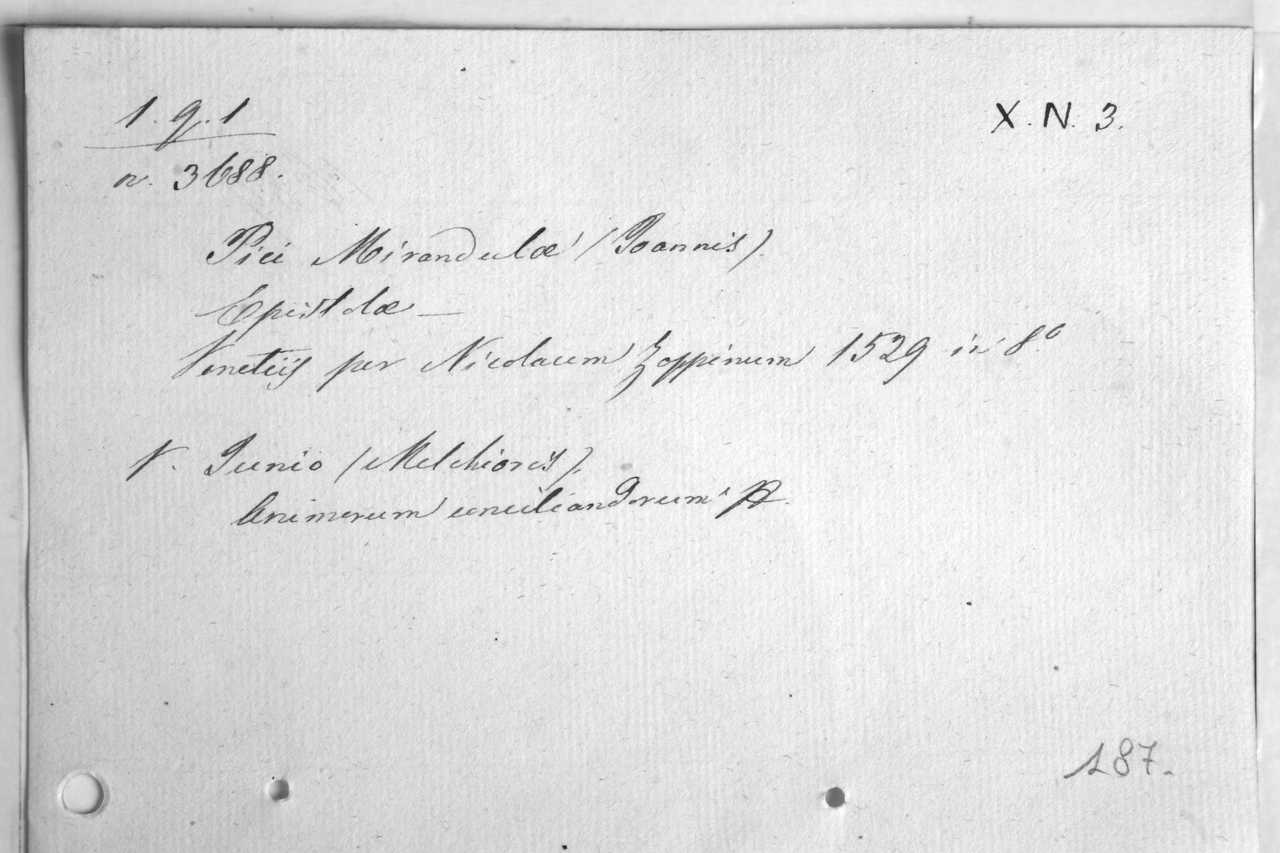 1. q. 1
X. N. 3.
n. 3688.
Pici Mirandulae (Joannis)
Epistolae —
Venetiis per Nicolaum Zoppinum 1529 in 8º
V. Junio (Melchioris).
Animorum conciliandorum
187.